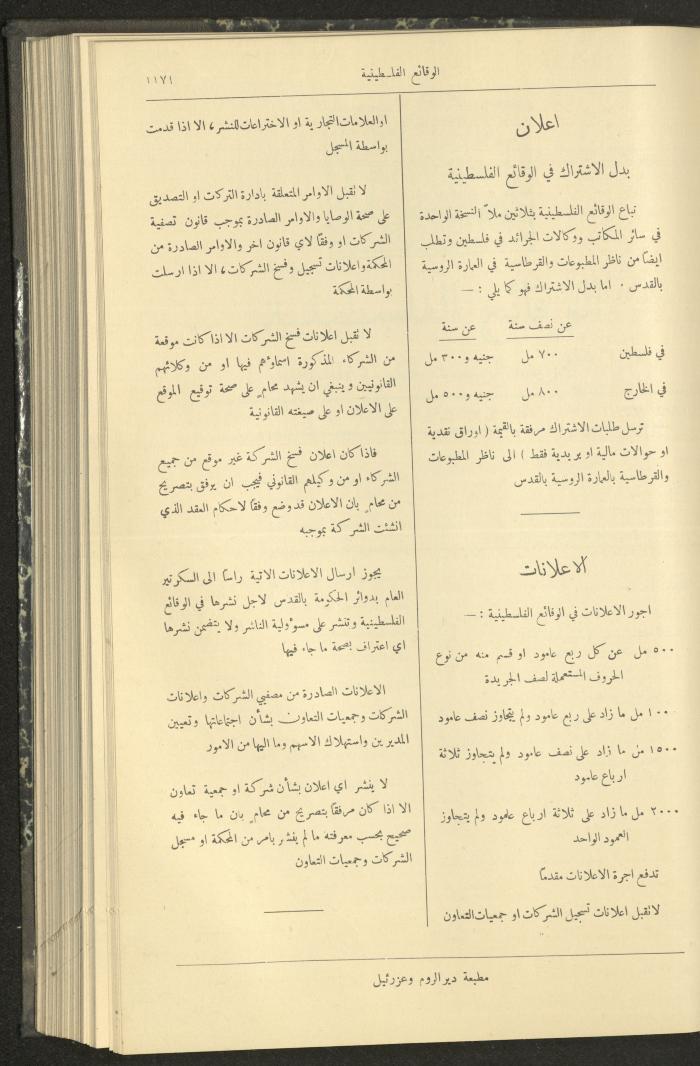 الوقائع الفلسطينية
١١٧٤
اعلان
بدل الاشتراك في الوقائع الفلسطينية
تباع الوقائع الفلسطينية بثلاثين ملاً النسخة الواحدة
في سائر المكاتب ووكالات الجرائد في فلسطين وتطلب
ايضاً من ناظر المطبوعات والقرطاسية في العمارة الروسية
بالقدس . اما بدل الاشتراك فهو كما يلي : —
عن نصف سنة عن سنة
في فلسطين ٧٠٠ مل جنيه و٣٠٠ مل
في الخارج ٨٠٠ مل جنيه و٥٠٠ مل
ترسل طلبات الاشتراك مرفقة بالقيمة ( اوراق نقدية
او حوالات مالية او بريدية فقط ) الى ناظر المطبوعات
والقرطاسية بالعمارة الروسية بالقدس
الاعلانات
اجور الاعلانات في الوقائع الفلسطينية : —
٥٠٠ مل عن كل ربع عامود او قسم منه من نوع
الحروف المستعملة لصف الجريدة
١٠٠٠ مل ما زاد على ربع عامود ولم يتجاوز نصف عامود
١٥٠٠ مل ما زاد على نصف عامود ولم يتجاوز ثلاثة
ارباع عامود
٢٠٠٠ مل ما زاد على ثلاثة ارباع عامود ولم يتجاوز
العمود الواحد
تدفع اجرة الاعلانات مقدماً
لا نقبل اعلانات تسجيل الشركات او جمعيات التعاون
او العلامات التجارية او الاختراعات للنشر ، الا اذا قدمت
بواسطة المسجل
لا نقبل الاوامر المتعلقة بادارة التركات او التصديق
على صحة الوصايا والاوامر الصادرة بموجب قانون تصفية
الشركات او وفقاً لاي قانون اخر والاوامر الصادرة من
المحكمة واعلانات تسجيل وفسخ الشركات ، الا اذا ارسلت
بواسطة المحكمة
لا نقبل اعلانات فسخ الشركات الا اذا كانت موقعة
من الشركاء المذكورة اسماؤهم فيها او من وكلائهم
القانونيين وينبغي ان يشهد محامٍ على صحة توقيع الموقع
على الاعلان او على صيغته القانونية
فاذا كان اعلان فسخ الشركة غير موقع من جميع
الشركاء او من وكيلهم القانوني فيجب ان يرفق بتصريح
من محامٍ بان الاعلان قد وضع وفقاً لاحكام العقد الذي
انشئت الشركة بموجبه
يجوز ارسال الاعلانات الاتية راساً الى السكرتير
العام بدوائر الحكومة بالقدس لاجل نشرها في الوقائع
الفلسطينية وتنشر على مسؤولية الناشر ولا يتضمن نشرها
اي اعتراف بصحة ما جاء فيها
الاعلانات الصادرة من مصفيي الشركات واعلانات
الشركات وجمعيات التعاون بشأن اجتماعاتها وتعيين
المديرين واستهلاك الاسهم وما اليها من الامور
لا ينشر اي اعلان بشأن شركة او جمعية تعاون
الا اذا كان مرفقاً بتصريح من محامٍ بان ما جاء فيه
صحيح بحسب معرفته ما لم ينشر بامر من المحكمة او مسجل
الشركات وجمعيات التعاون
مطبعة دير الروم وعزرئيل